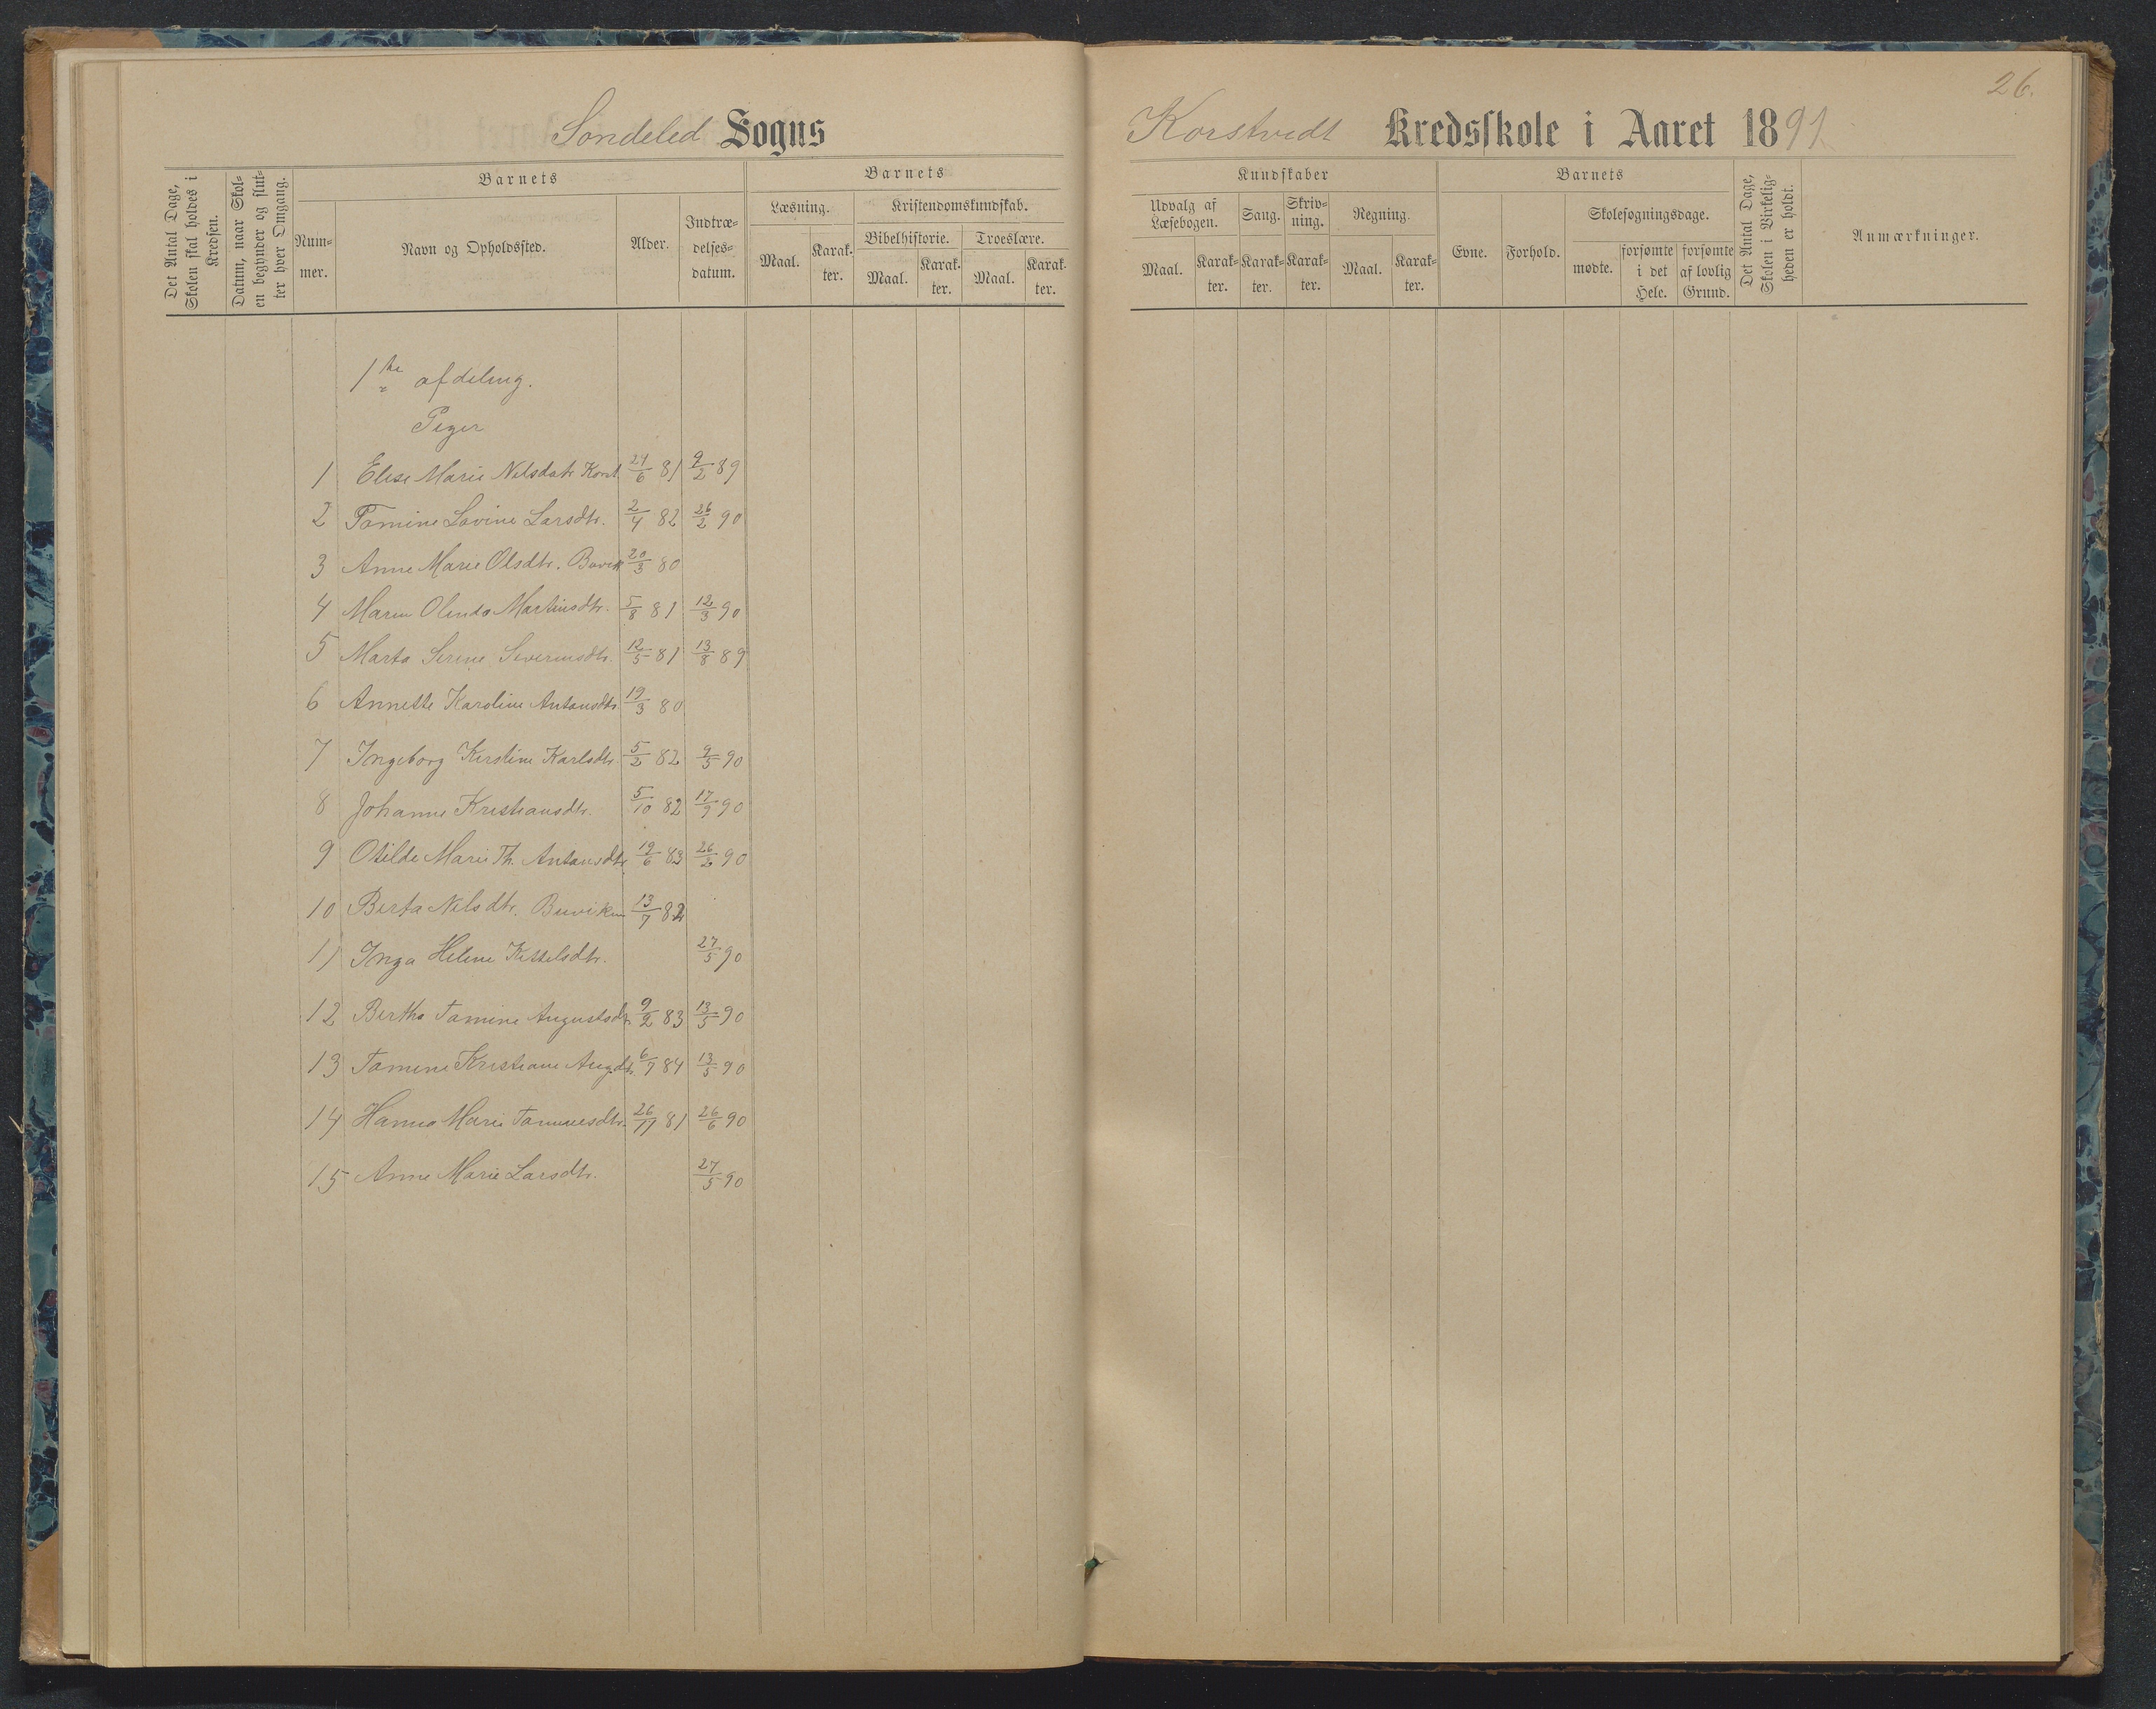 26.
Søndeled Sogns Korstvedt Kredsskole i Aaret 1891.
Det Antal Dage, Skolen skal holdes i Kredsen.
Datum, naar Skolen begynder og slutter hver Omgang.
Barnets
Nummer.
Navn og Opholdssted.
Alder.
Indtrædelsesdatum.
Barnets
Læsning.
Maal.
Karakter.
Kristendomskundskab.
Bibelhistorie.
Maal.
Karakter.
Troeslære.
Maal.
Karakter.
Kundskaber
Udvalg af Læsebogen.
Maal.
Karakter.
Sang.
Karakter.
Skrivning.
Karakter.
Regning.
Maal.
Karakter.
Barnets
Evne.
Forhold.
Skolesøgningsdage.
mødte.
forsømte i det Hele.
forsømte af lovlig Grund.
Det Antal Dage, Skolen i Virkeligheden er holdt.
Anmærkninger.
1ste afdeling.
Piger
1 Elise Marie Nilsdatr Korst. 24/6 81 9/2 89
2 Tomine Lovine Larsdtr. 2/4 82 26/2 90
3 Anne Marie Olsdtr. Buvik 20/3 80
4 Maren Olinda Martinsdtr. 5/8 81 12/3 90
5 Marta Serine Severinsdtr. 12/5 81 13/8 89
6 Annette Karoline Antonsdtr. 19/3 80
7 Ingeborg Kirstine Karlsdtr. 5/2 82 9/5 90
8 Johanne Kristiansdtr. 5/10 82 17/9 90
9 Otilde Marie Th. Antonsdtr. 19/6 83 26/2 90
10 Berta Nilsdtr. Buviken 13/7 82
11 Inga Helene Kittelsdtr. 27/5 90
12 Bertha Tomine Augustsdtr. 9/2 83 13/5 90
13 Tomine Kristiane Aug.dtr. 6/7 84 13/5 90
14 Hanna Marie Tommesdtr. 26/11 81 26/6 90
15 Anne Marie Larsdtr. 27/5 90